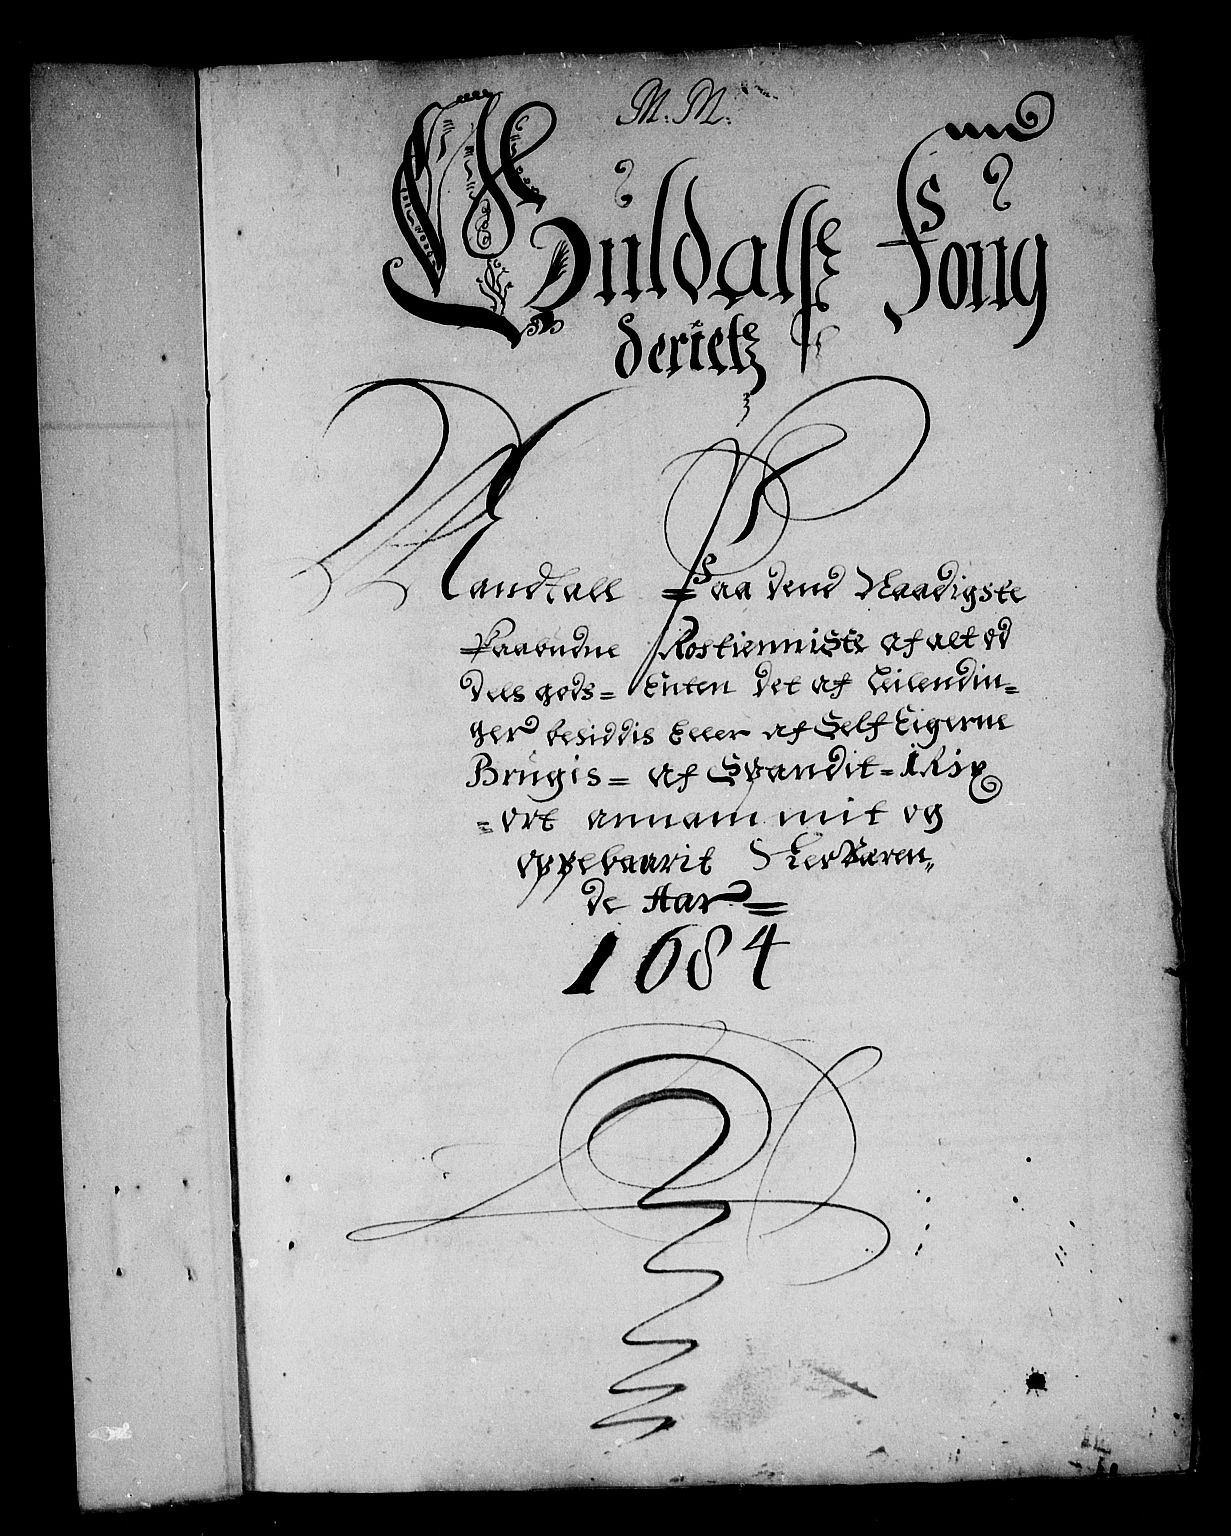 M. M.
Guldals foug
deriets
Mandtall Paa dend Naadigste
Paabudne Rostienniste af alt od
dels gods = Enten det af Leilendin=
ger besiddis Eller af Self Eigerne
Brugis = af Spandit = 1 Rix
= ort annammit og
oppebaarit
de Aar =
1684